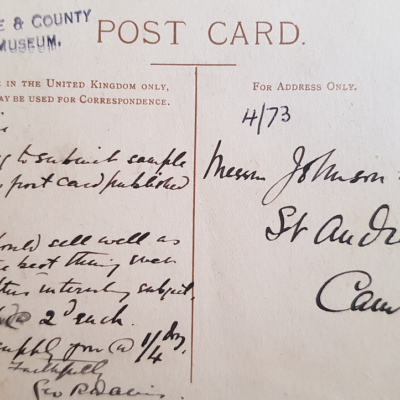 E & COUNTY
MUSEUM.
POST CARD.
E IN THE UNITED KINGDOM ONLY,
MAY BE USED FOR CORRESPONDENCE.
to submit sample
post card published
sell well as
best thing ever
this interesting subject,
@ 2d each.
supply you @ 1/4 doz.
Faithfully
Geo R Davis
FOR ADDRESS ONLY.
4/73
Messrs Johnson
St Andre
Cam